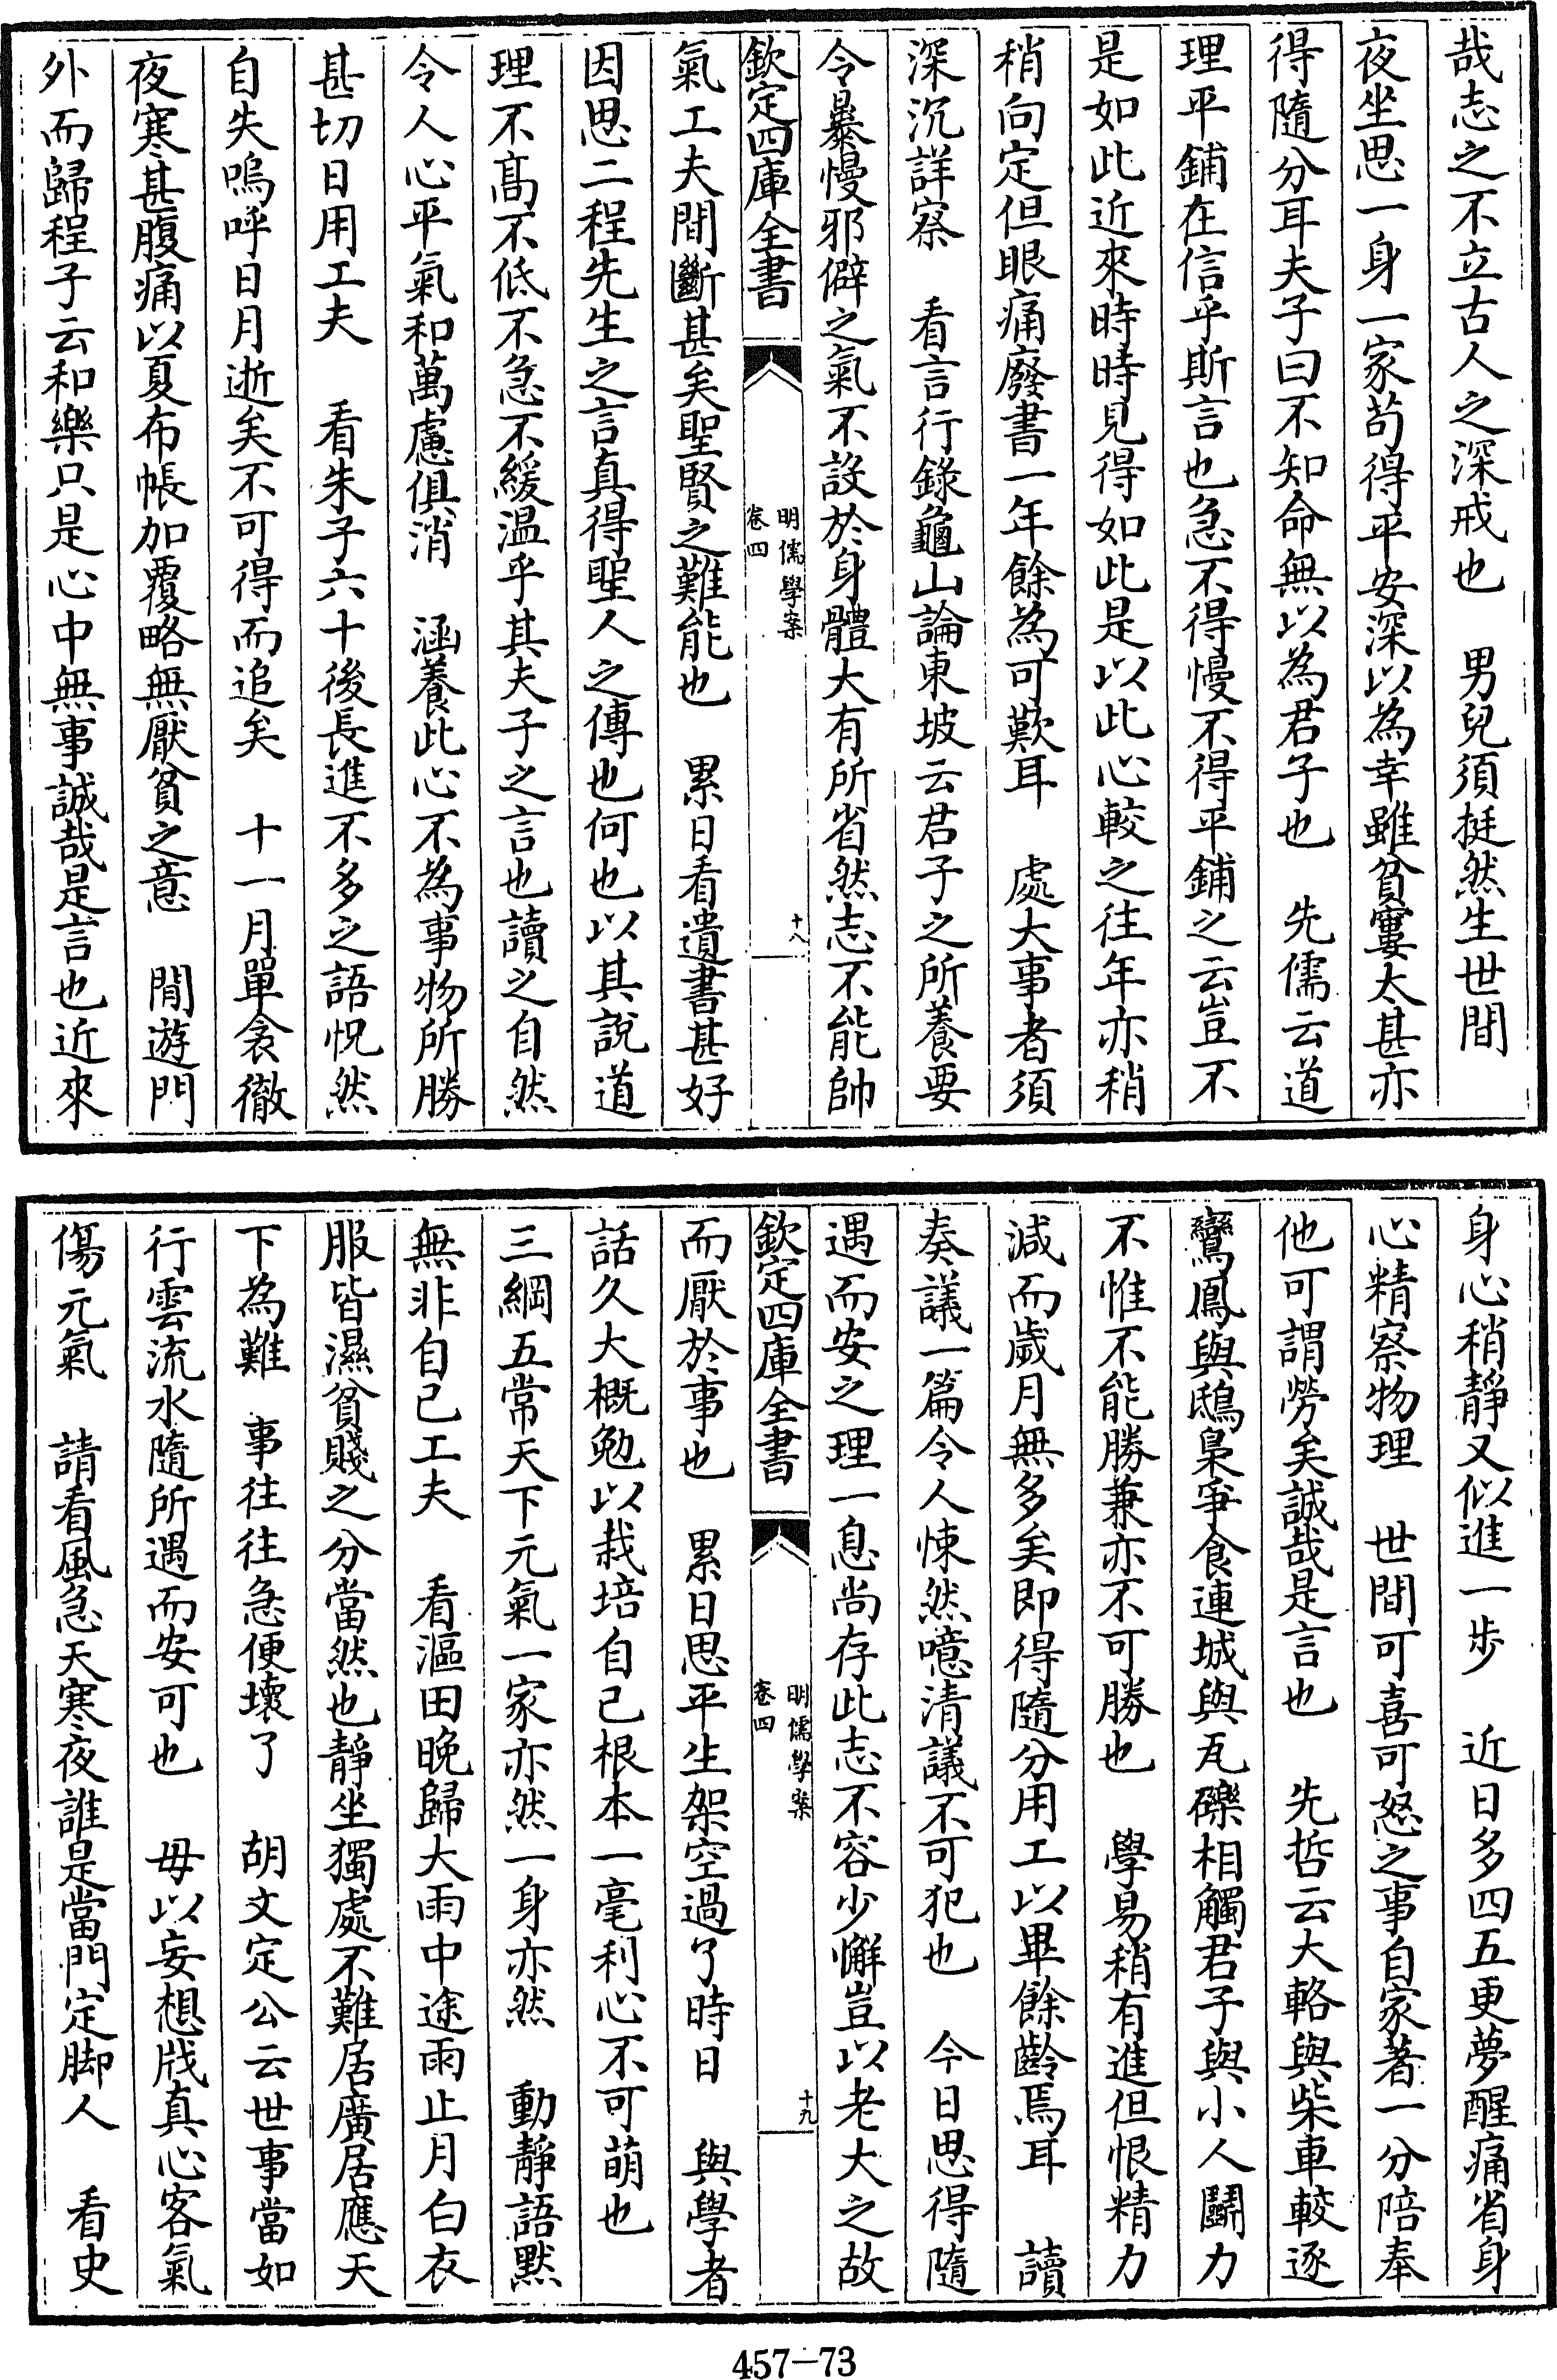 哉志之不立古人之深戒也　男兒須挺然生世間
夜坐思一身一家苟得平安深以為幸雖貧窶太甚亦
得隨分耳夫子曰不知命無以為君子也　先儒云道
理平鋪在信乎斯言也急不得慢不得平鋪之云豈不
是如此近來時時見得如此是以此心較之往年亦稍
稍向定但眼痛廢書一年餘為可歎耳　處大事者須
深沉詳察　看言行錄龜山論東坡云君子之所養要
令暴慢邪僻之氣不設於身體大有所省然志不能帥
欽定四庫全書
明儒學案
卷四
十八
氣工夫間斷甚矣聖賢之難能也　累日看遺書甚好
因思二程先生之言真得聖人之傳也何也以其說道
理不高不低不急不緩温乎其夫子之言也讀之自然
令人心平氣和萬慮俱消　涵養此心不為事物所勝
甚切日用工夫　看朱子六十後長進不多之語怳然
自失嗚呼日月逝矣不可得而追矣　十一月單衾徹
夜寒甚腹痛以夏布帳加覆略無厭貧之意　閒遊門
外而歸程子云和樂只是心中無事誠哉是言也近來
身心稍靜又似進一步　近日多四五更夢醒痛省身
心精察物理　世間可喜可怒之事自家著一分陪奉
他可謂勞矣誠哉是言也　先哲云大輅與柴車較逐
鸞鳳與鴟梟爭食連城與瓦礫相觸君子與小人鬬力
不惟不能勝兼亦不可勝也　學易稍有進但恨精力
減而歲月無多矣即得隨分用工以畢餘齡焉耳　讀
奏議一篇令人悚然噫清議不可犯也　今日思得隨
遇而安之理一息尚存此志不容少懈豈以老大之故
欽定四庫全書
明儒學案
卷四
十九
而厭於事也　累日思平生架空過了時日　與學者
話久大概勉以栽培自己根本一毫利心不可萌也
三綱五常天下元氣一家亦然一身亦然　動靜語默
無非自己工夫　看漚田晚歸大雨中途雨止月白衣
服皆濕貧賤之分當然也靜坐獨處不難居廣居應天
下為難　事往往急便壞了　胡文定公云世事當如
行雲流水隨所遇而安可也　毋以妄想戕真心客氣
傷元氣　請看風急天寒夜誰是當門定脚人　看史
457-73